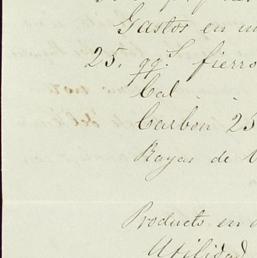 Gastos en
25. qq.s fierro
Cal . .
Carbon 25
Rayas de
Products en
Utilidad